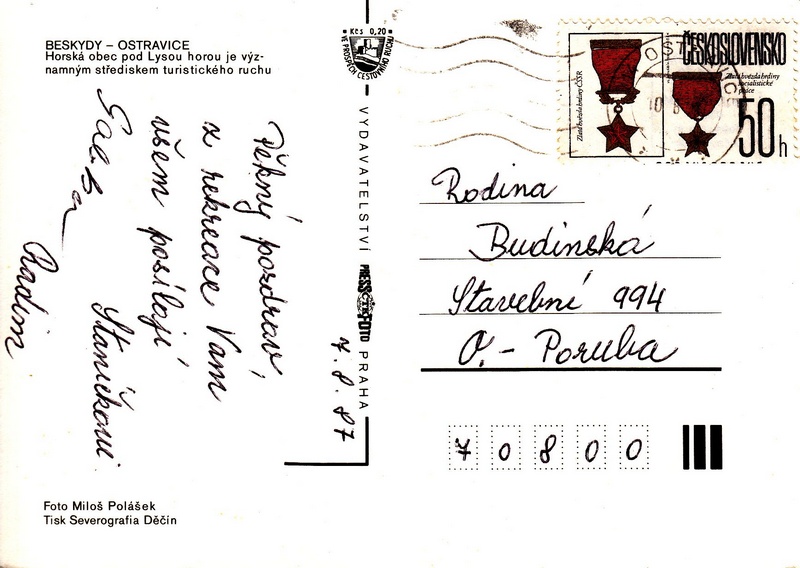 BESKYDY – OSTRAVICE
Horská obec pod Lysou horou je výz-
namným střediskem turistického ruchu
Pěkný pozdrav
z rekreace Vám
všem posílají
Staníčkovi
Radim
7. 8. 87
Kčs 0,20
VE PROSPĚCH CESTOVNÍHO RUCHU
VYDAVATELSTVÍ PRESSFOTO PRAHA
ČESKOSLOVENSKO
Zlatá hvězda hrdiny ČSSR
Zlatá hvězda hrdiny
socialistické
práce
50 h
Rodina
Budinská
Stavební 994
O. - Poruba
7 0 8 0 0
Foto Miloš Polášek
Tisk Severografia Děčín